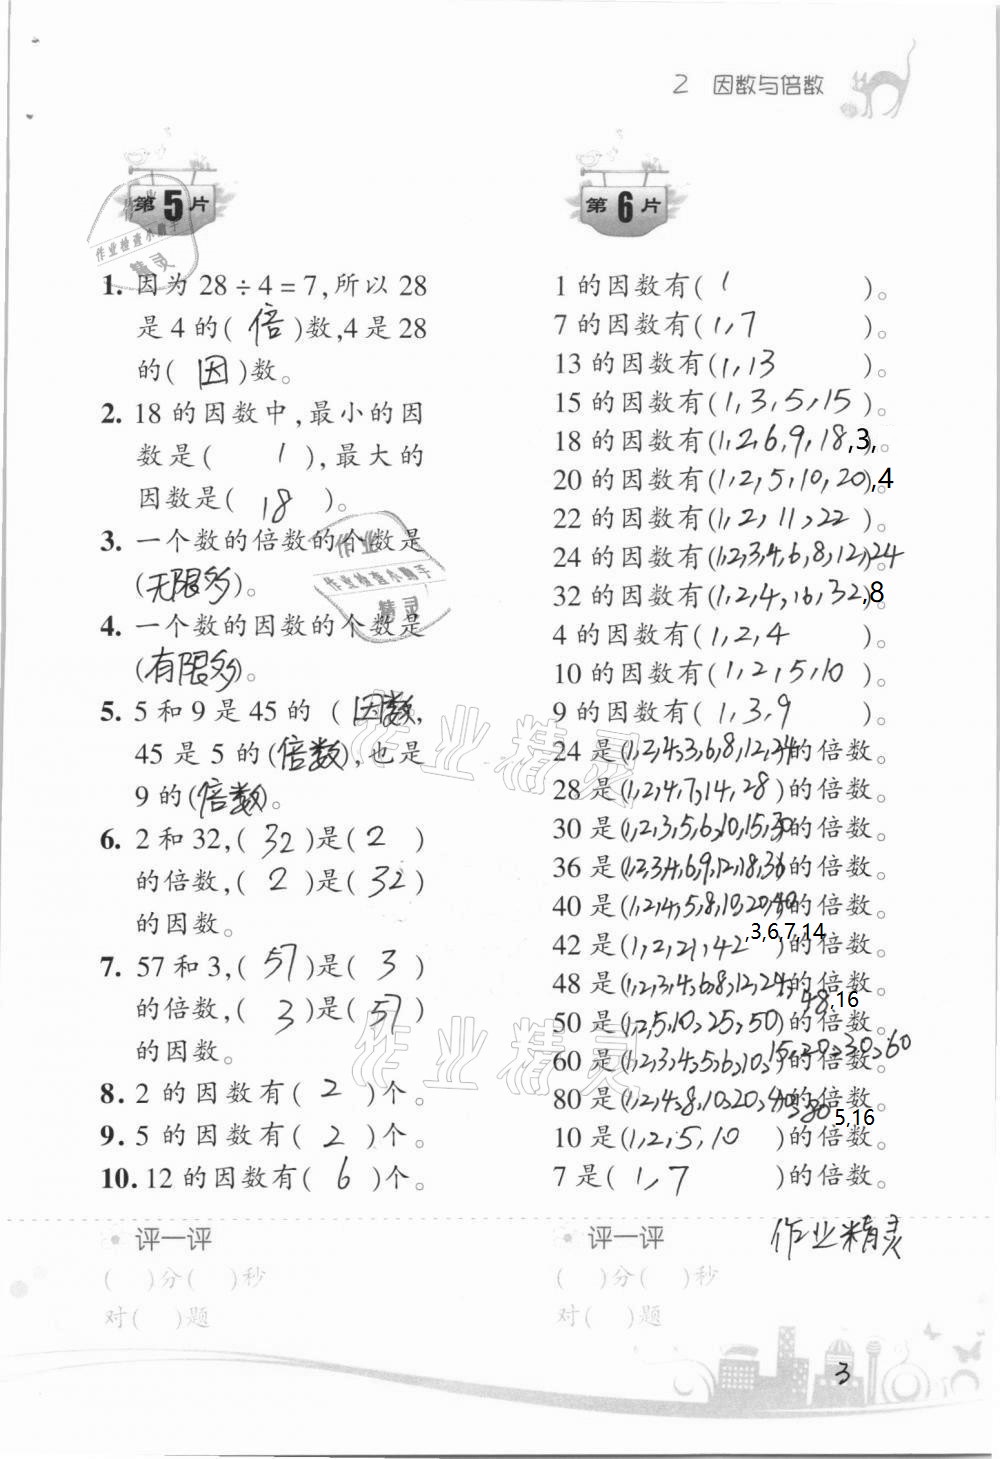 2 因数与倍数
第5片
1. 因为 28÷4=7,所以 28
是 4 的( 倍 )数,4 是 28
的( 因 )数。
2. 18 的因数中,最小的因
数是( 1 ),最大的
因数是( 18 )。
3. 一个数的倍数的个数是
(无限多)。
4. 一个数的因数的个数是
(有限多)。
5. 5 和 9 是 45 的 (因数,
45 是 5 的(倍数),也是
9 的(倍数)。
6. 2 和 32,( 32 )是( 2 )
的倍数,( 2 )是( 32 )
的因数。
7. 57 和 3,( 57 )是( 3 )
的倍数,( 3 )是( 57 )
的因数。
8. 2 的因数有( 2 )个。
9. 5 的因数有( 2 )个。
10. 12 的因数有( 6 )个。
评一评
( )分( )秒
对( )题
第6片
1 的因数有( 1 )。
7 的因数有( 1,7 )。
13 的因数有( 1,13 )。
15 的因数有( 1,3,5,15 )。
18 的因数有(1,2,6,9,18,3,。
20 的因数有(1,2,5,10,20),4
22 的因数有( 1,2,11,22 )。
24 的因数有(1,2,3,4,6,8,12),24
32 的因数有(1,2,4,16,32),8
4 的因数有( 1,2,4 )。
10 的因数有( 1,2,5,10 )。
9 的因数有( 1,3,9 )。
24 是(1,2,4,3,6,8,12,24)的倍数。
28 是(1,2,4,7,14,28)的倍数。
30 是(1,2,3,5,6,10,15,30)的倍数。
36 是(1,2,3,4,6,9,12,18,36)的倍数。
40 是(1,2,4,5,8,10,20,40)的倍数。
42 是(1,2,21,42 ,3,6,7,14)的倍数。
48 是(1,2,3,4,6,8,12,24,)的倍数。
48,16
50 是(1,2,5,10,25,50)的倍数。
60 是(1,2,3,4,5,6,10,)的倍数。15,20,30,60
80 是(1,2,4,8,10,20,40)的倍数。
80 5,16
10 是(1,2,5,10 )的倍数。
7 是( 1,7 )的倍数。
作业精灵
评一评
( )分( )秒
对( )题
3
作业
作业检查小助手
精灵
作业
作业检查小助手
精灵
作业精灵
作业精灵